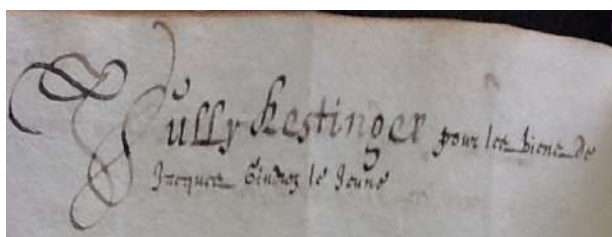 Kestinger pour les biens de
Jacques Gindroz le Jeune